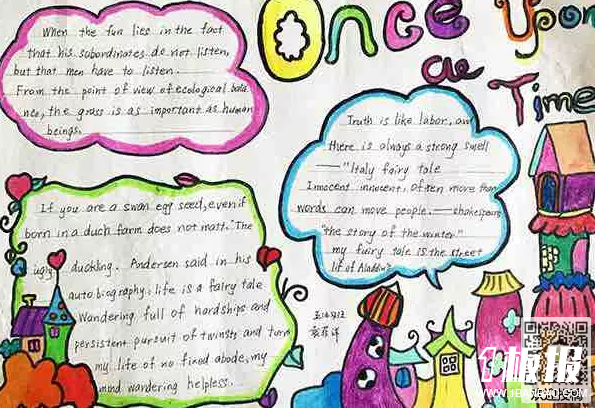 Once Upon
a
Time
When the fun lies in the fact
that his subordinates do not listen,
but that men have to listen.
From the point of view of ecological bala
nce, the grass is as important as human
beings.
Truth is like labor, and
there is always a strong smell
——"Italy fairy tale
Innocent innocent, often more than
words can move people.——shakespeare
"the story of the winter."
my fairy tale is the street
lif of Aladdin
If you are a swan egg seed, even if
born in a duch farm does not matt. "The
ugly duckling. Andersen said in his
autobiography, life is a fairy tale
Wandering full of hardships and
persistent pursuit of twinsts and turn
my life of no fixed abode, my
mind wandering helpless.
板报
WWW.1BANBAO.COM